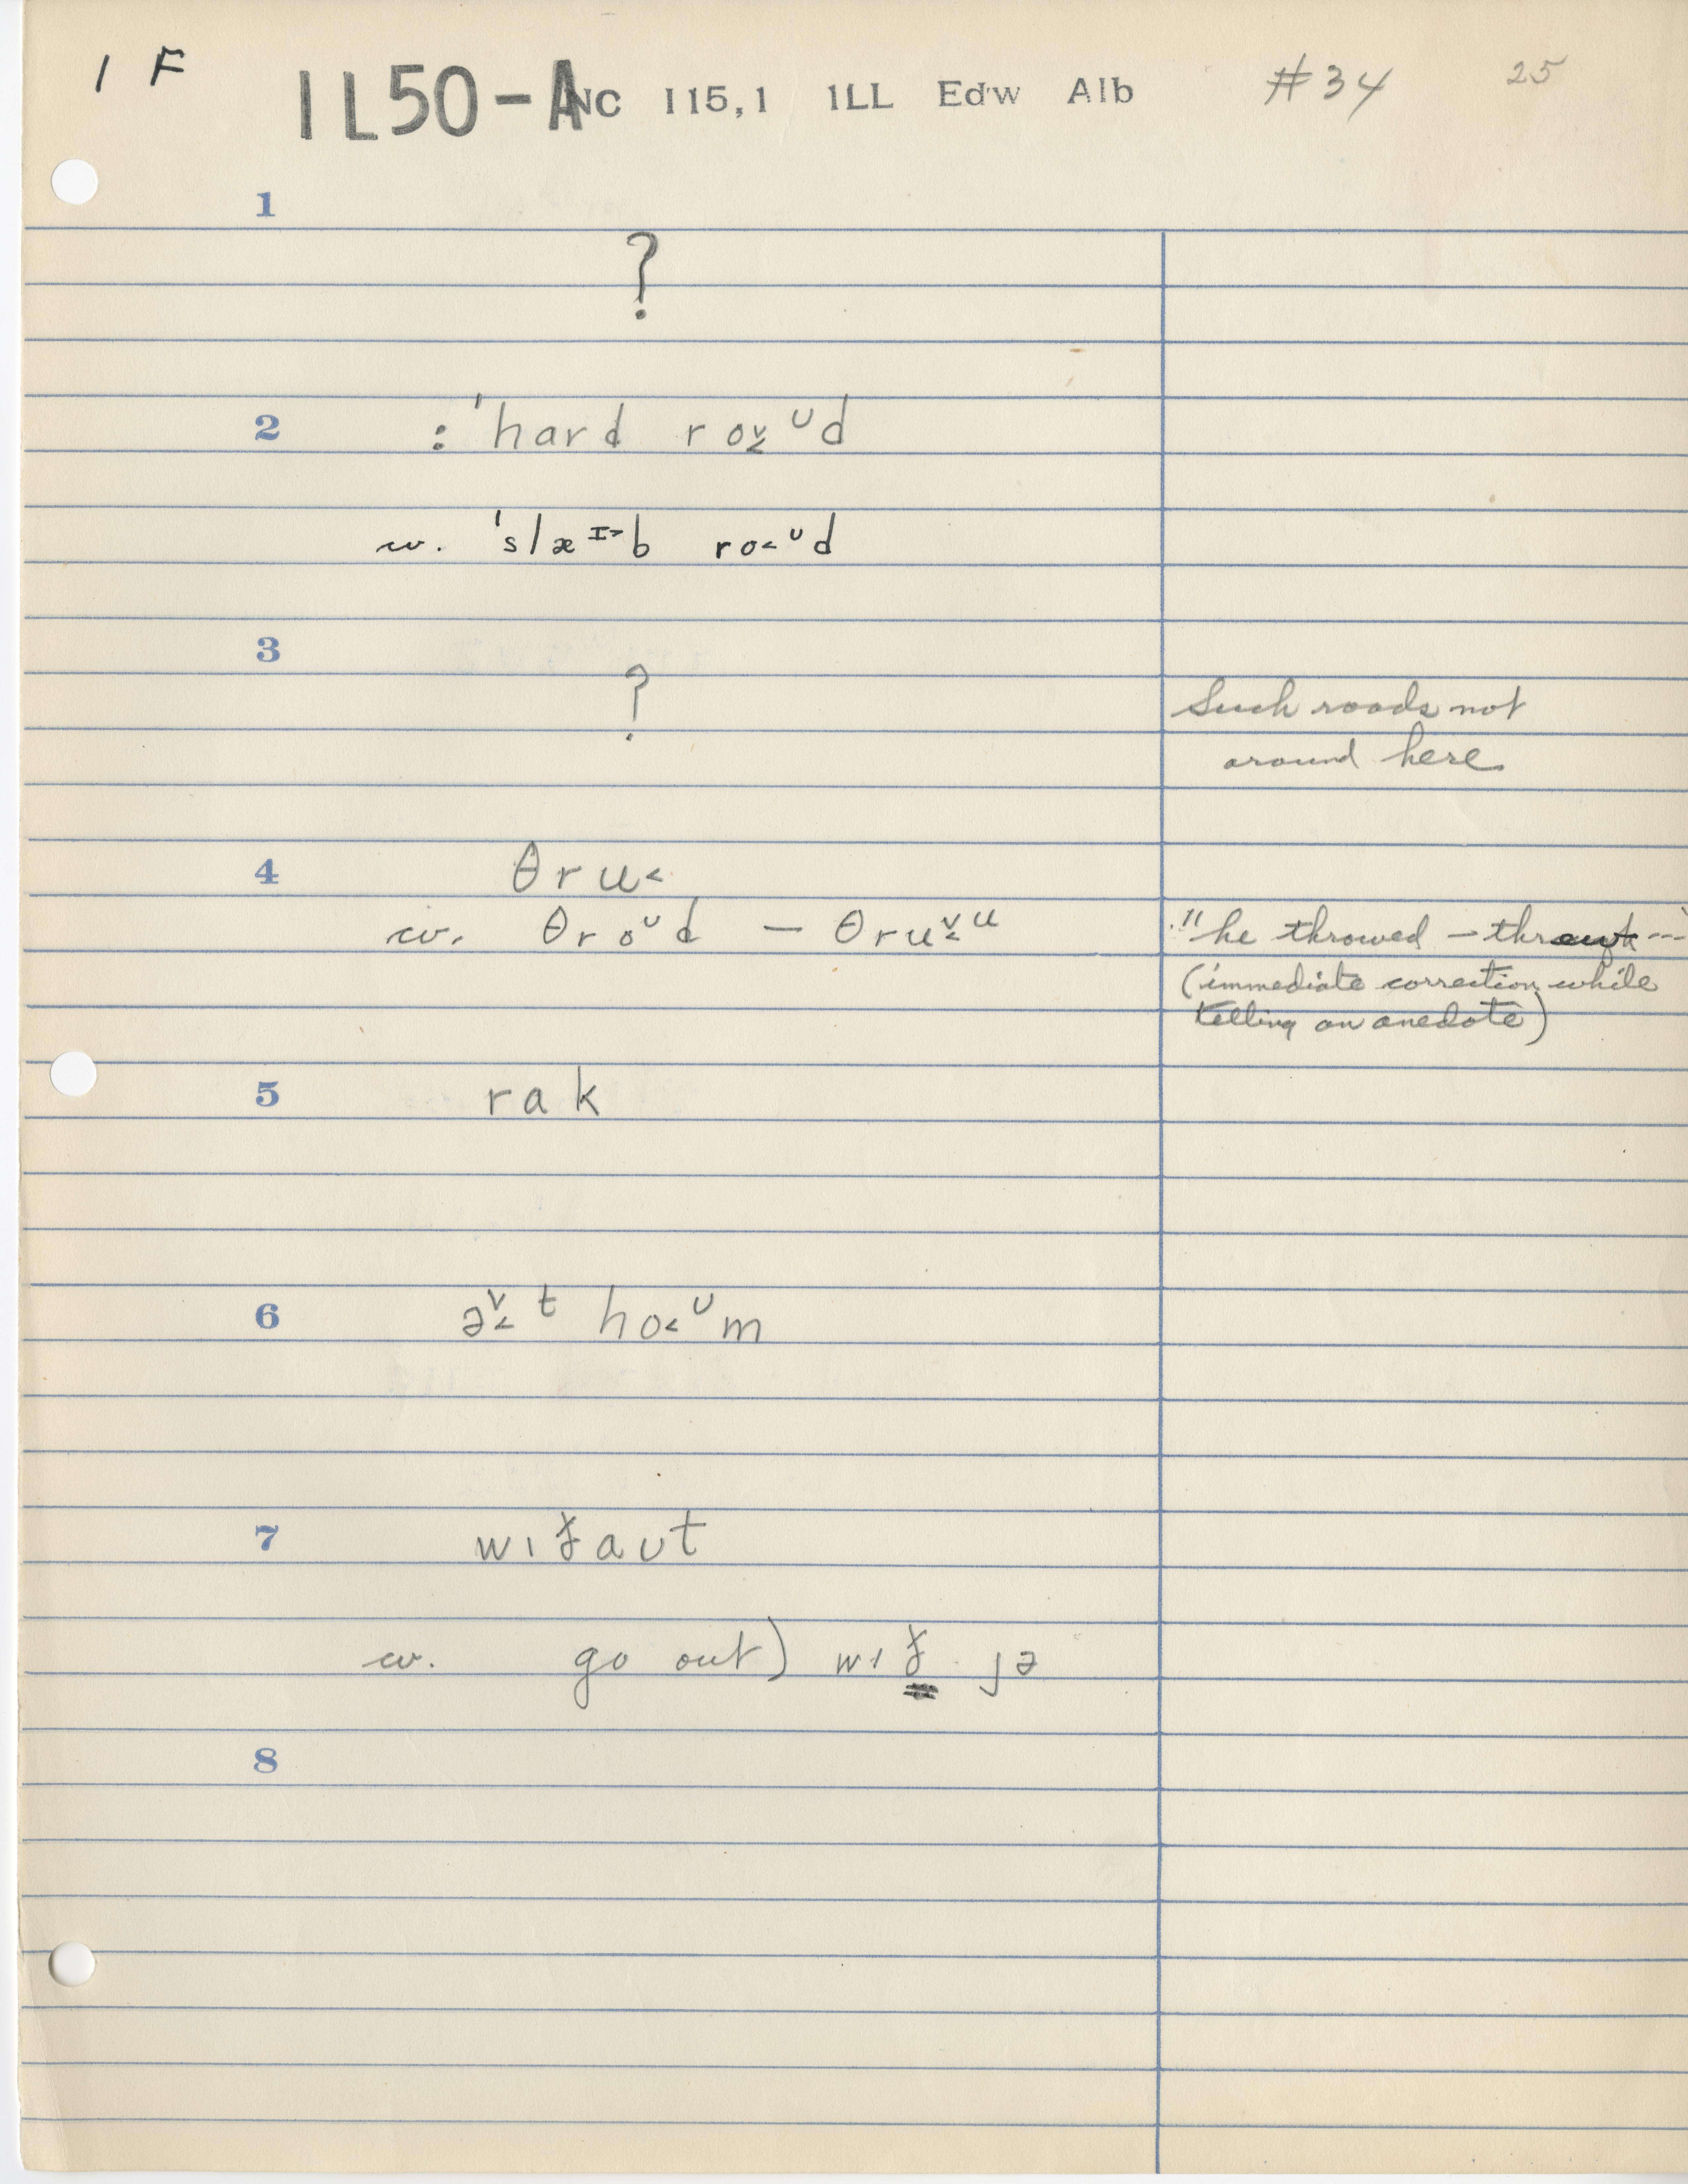 1 F
IL50-A NC 115,1 ILL Edw Alb #34 25
1
?
2 : ˈhard ro˅˂ᶸd
cv. ˈslæᴵ˃b ro˂ᶸd
3
?
Such roads not
around here
4 θru˂
cv. θroᶸd — θru˅˂ᵘ
"he throwed –
(immediate correction while
telling an anedote)
5 rak
6 ə˅˂t ho˂ᶸm
7 wɪðaʊt
cv. go out) wɪð jə
8